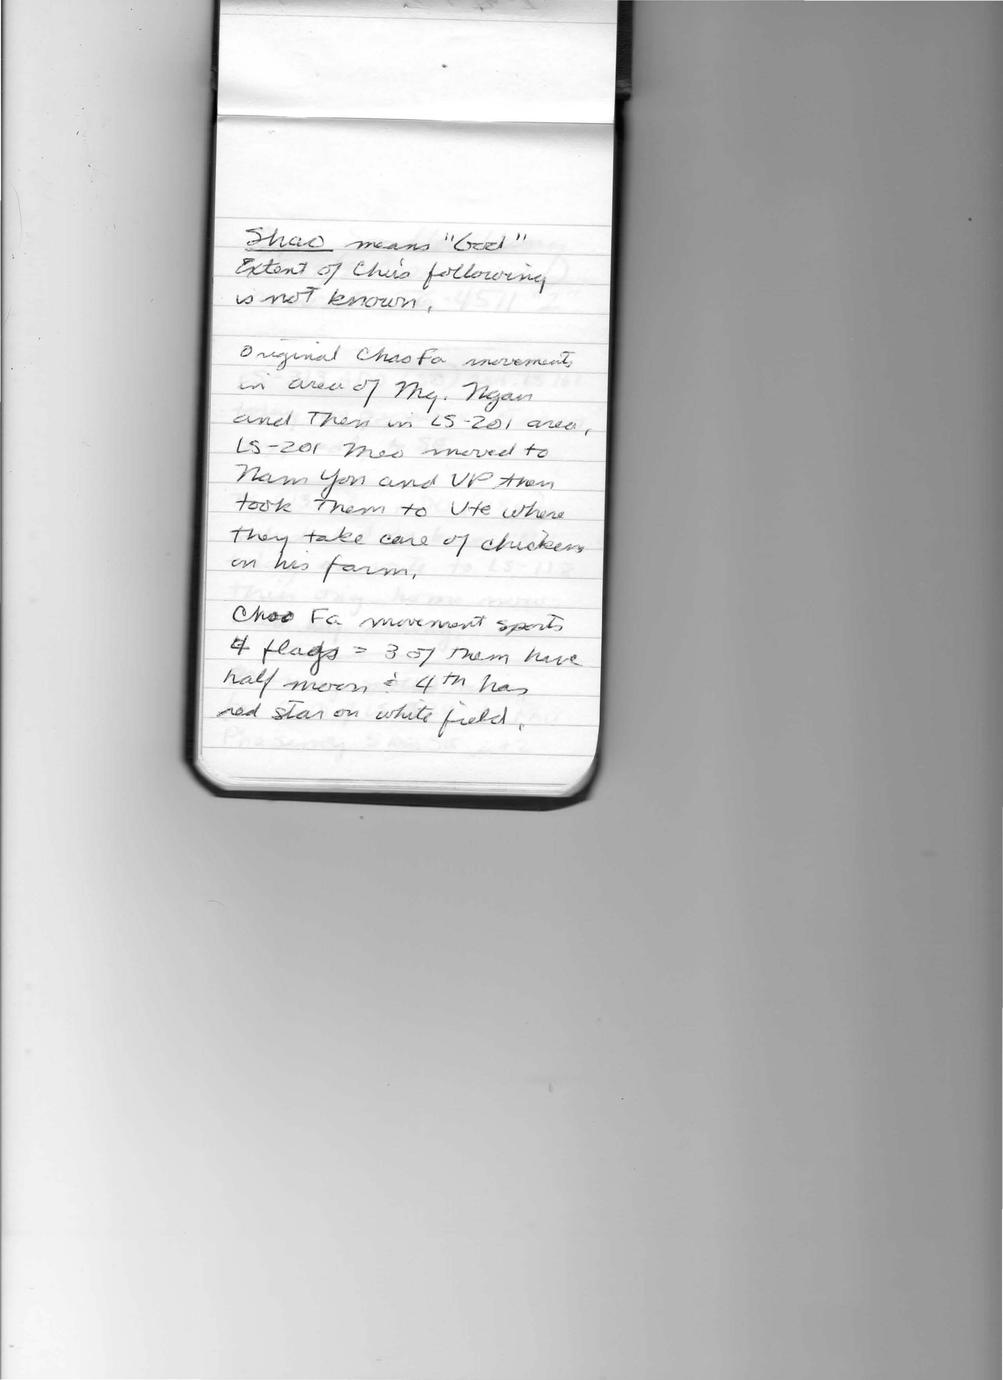 Shao means "God"
Extent of Chu's following
is not known.
Original Chao Fa movements
in area of Mg. Ngan
and then in LS-201 area.
LS-201 Meo moved to
Nam Yon and VP then
took them to Ute where
they take care of chickens
on his farm.
Chao Fa movement sports
4 flags = 3 of them have
half moon & 4th has
red star on white field.